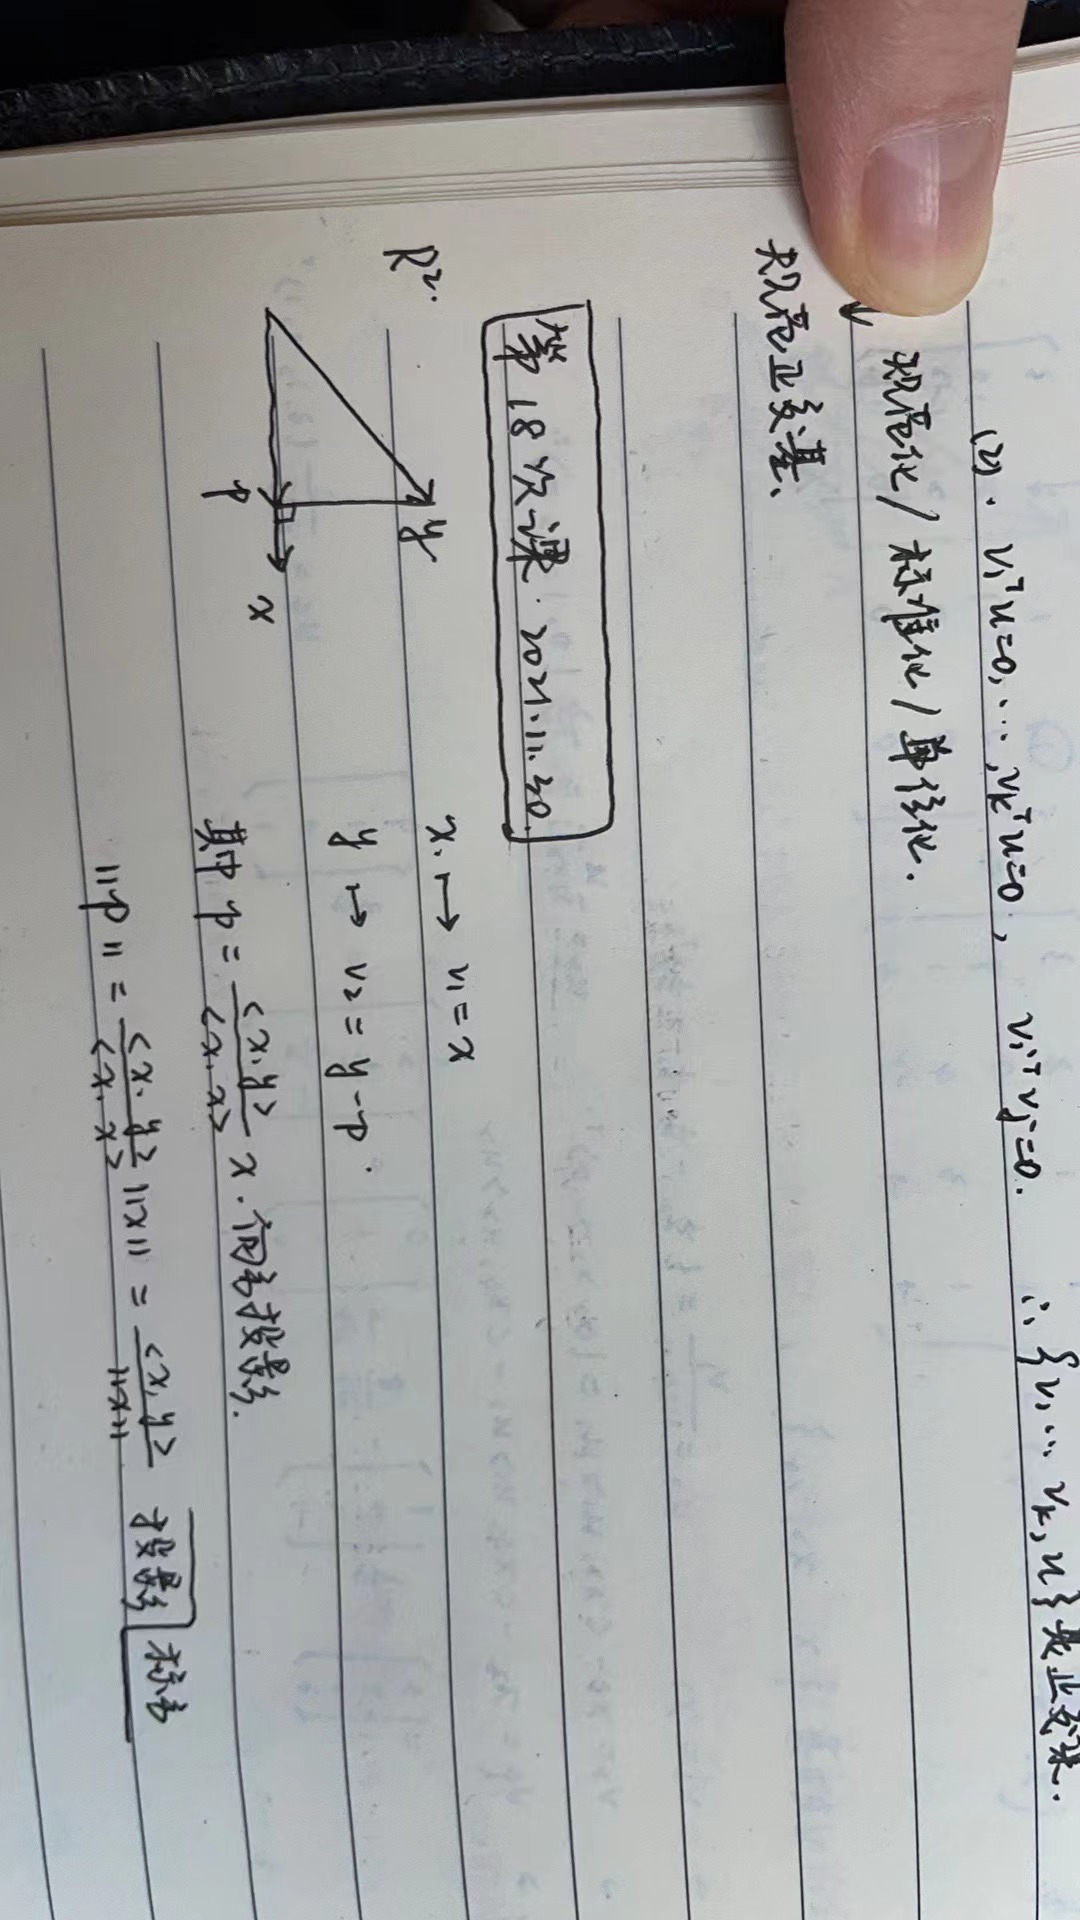 (2). v₁ᵀu=0, ⋯, vₖᵀu=0, vᵢᵀvⱼ=0. ∴ {v₁ ⋯ vₖ, u} 是正交集.
规范化/标准化/单位化.
↓
规范正交基.
第18次课. 2021.11.30.
R². y x p
x. ↦ v₁ = x
y ↦ v₂ = y-p.
其中 p = <x, y>/<x, x> x. 向量投影.
||p|| = <x, y>/<x, x> ||x|| = <x, y>/||x|| 投影 标量